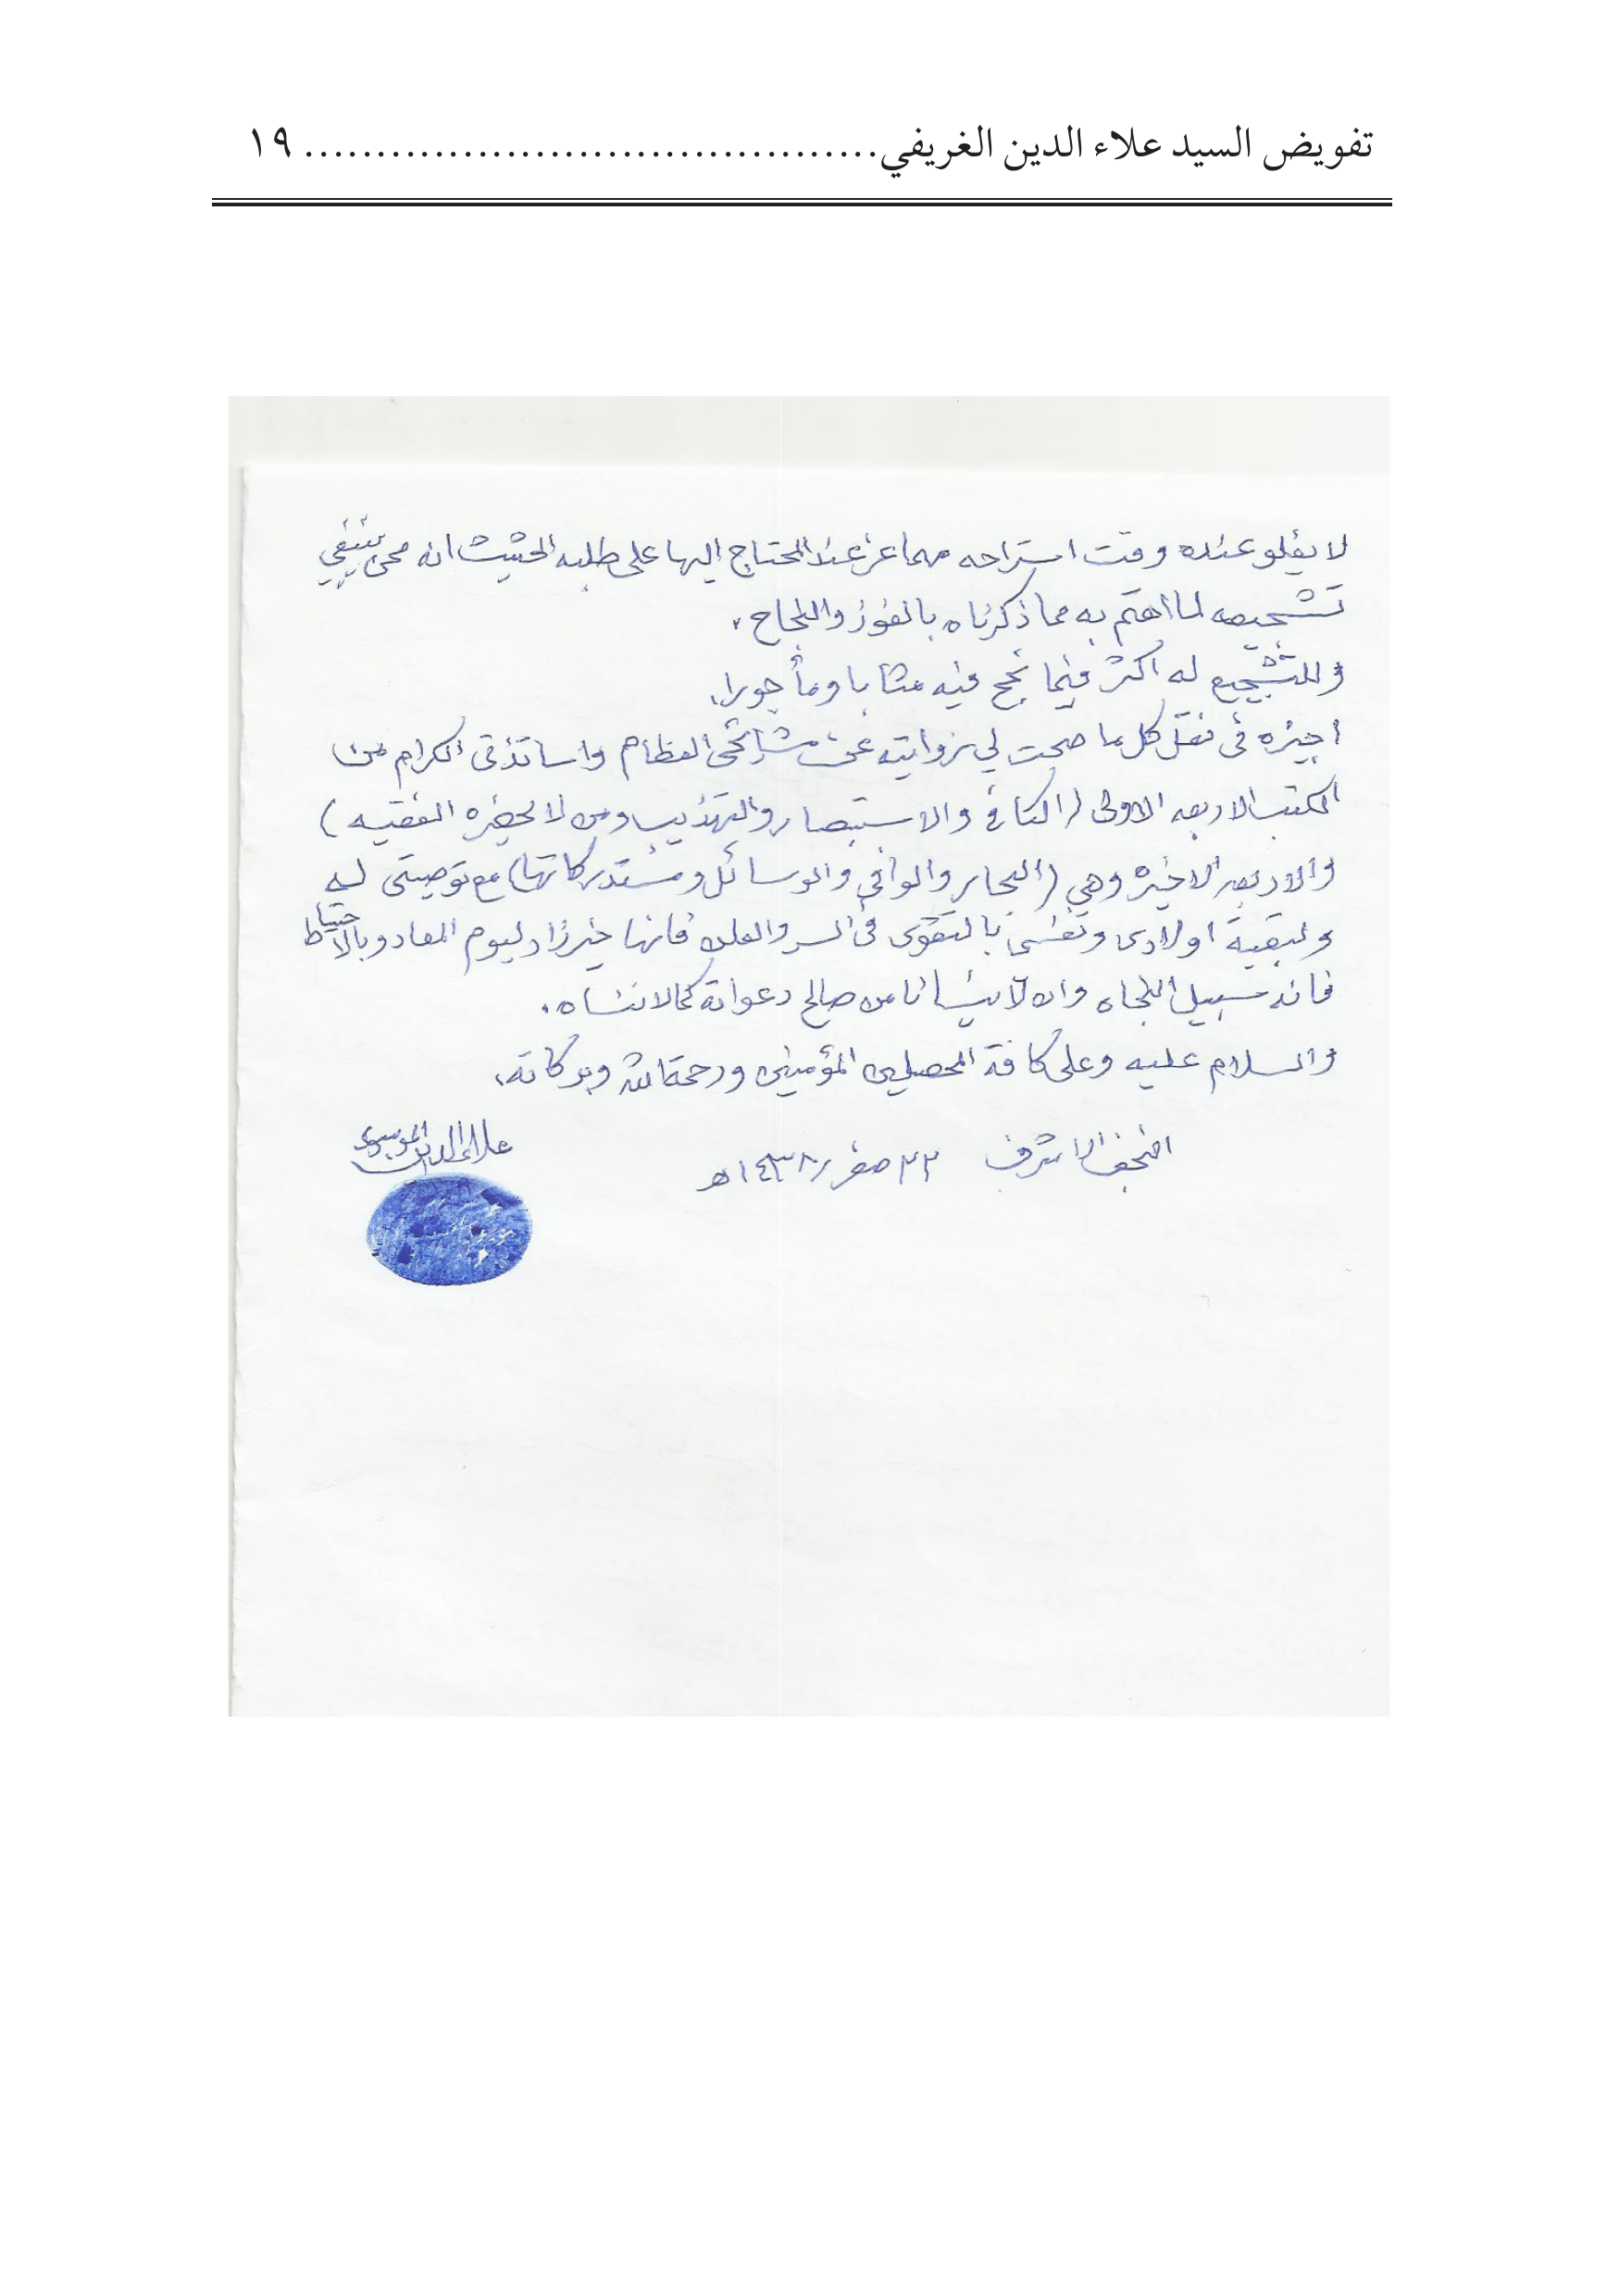 تفويض السيد علاء الدين الغريفي........................................ ١٩
لا يغلو عنده وقت استراحه مهما عز عند المحتاج اليها على طلبه الحثيث انه ممن ينبغي
تشجيعه لما اهتم به مما ذكرناه بالفوز والنجاح.
وللتشجيع له اكثر فيما نجح فيه مثابا ومأجورا.
اجيزه في نقل كل ما صحت لي روايته عن مشائخي العظام واساتذتي الكرام من
الكتب الاربعه الاولى (الكافي والاستبصار والتهذيب ومن لا يحضره الفقيه)
والاربعه الاخيره وهي (البحار والوافي والوسائل ومستدركاتها) مع توصيتي له
ولبقية اولادي ونفسي بالتقوى في السر والعلن فانها خير زاد ليوم المعاد وبالاحتياط
فانه سبيل النجاه وان لا ينسانا من صالح دعواته كما لا ننساه.
والسلام عليه وعلى كافة المحصلين المؤمنين ورحمة الله وبركاته.
النجف الاشرف ٢٢ صفر / ١٤٣٨هـ
علاء الدين الموسوي